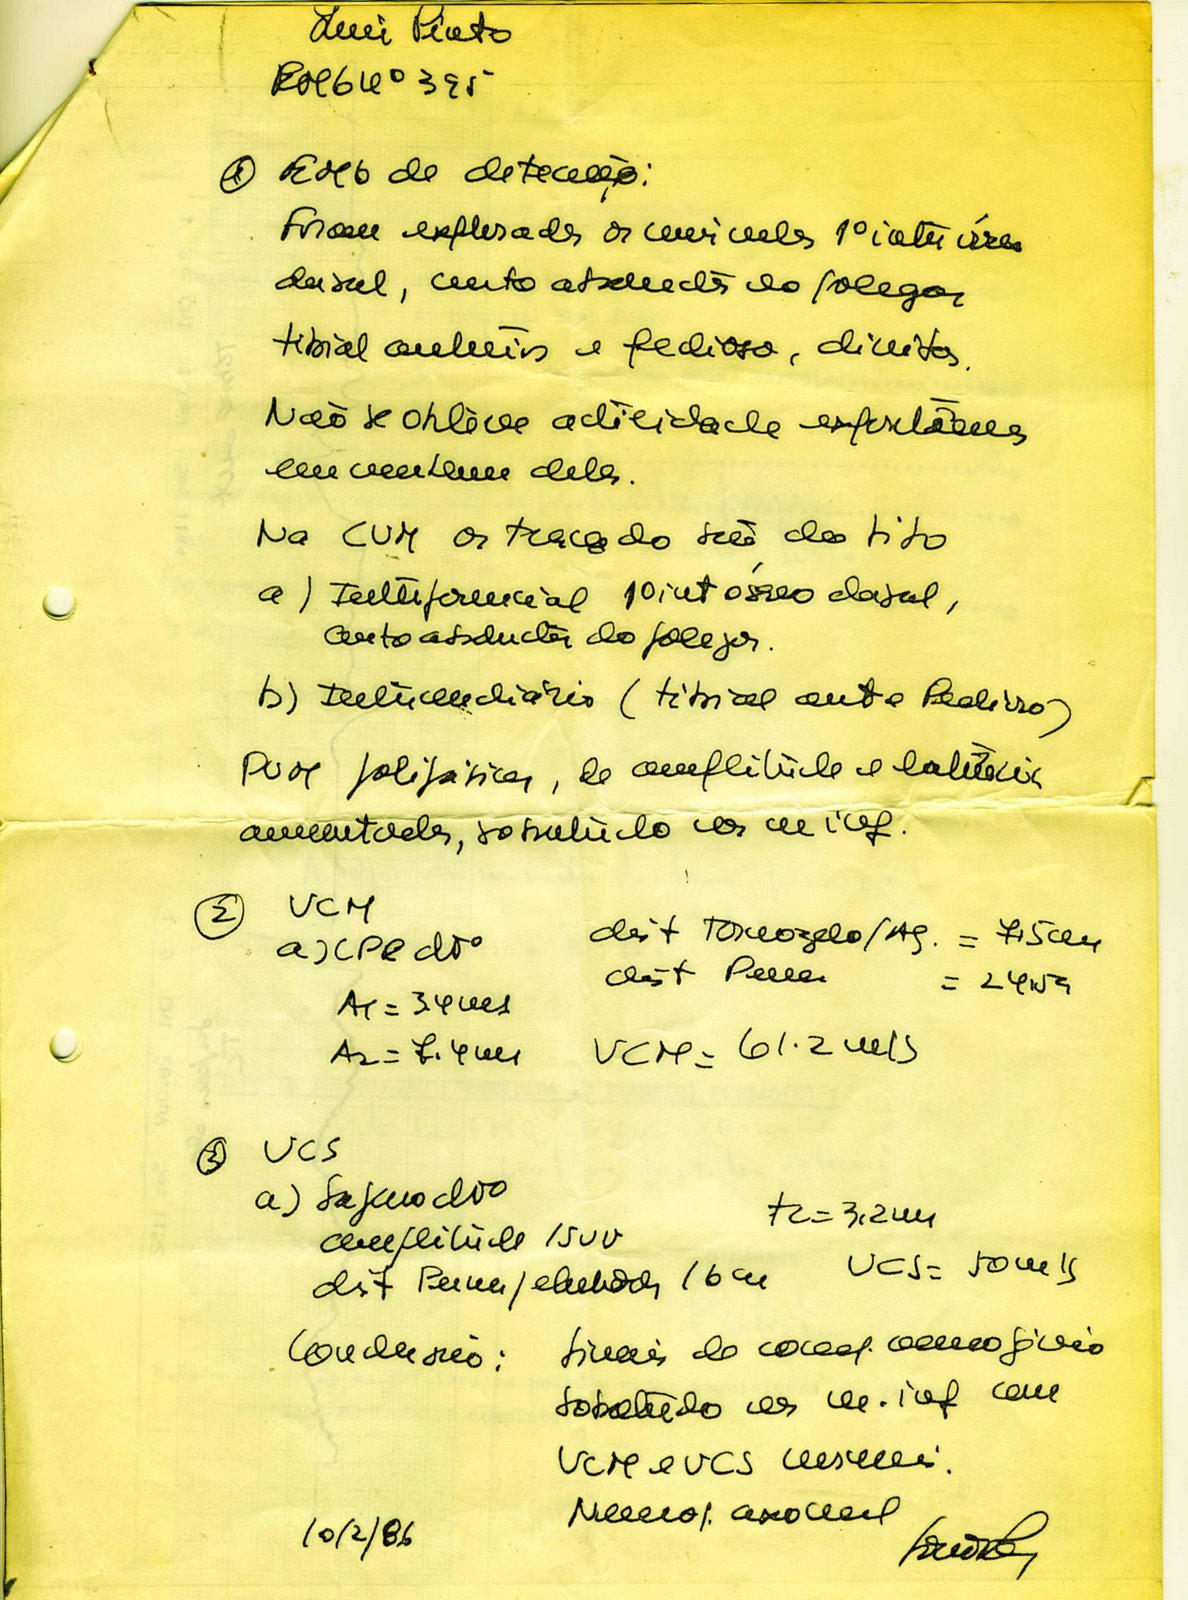 Luis Pinto
EMG Nº 395
① EMG de detecção:
Foram explorados os músculos 1º inter ósseo
dorsal, curto abductor do polegar
tibial anterior e pedioso, direitos.
Não se obteve actividade espontânea
em nenhum deles.
Na CVM os traçado são do tipo
a) Interferencial 1º int ósseo dorsal,
curto abductor do polegar.
b) Intermediário (tibial ant e Pedioso)
PUM polifásicos, de amplitude e latência
aumentadas, sobretudo nos m inf.
② VCM
a) CPE dtº
dist Tornozelo/ = 7.5cm
dist Perna = 24.5
A1 = 3.4ms
A2 = 7.4ms
VCM = 61.2 m/s
③ VCS
a) Safeno dtº
amplitude 15UV
tz = 3.2ms
dist Perna/electrodos 16cm
VCS = 50m/s
Conclusão: Sinais de neurogénio
sobretudo nos m. inf com
VCM e VCS normais.
Neurop. axonal
10/2/86